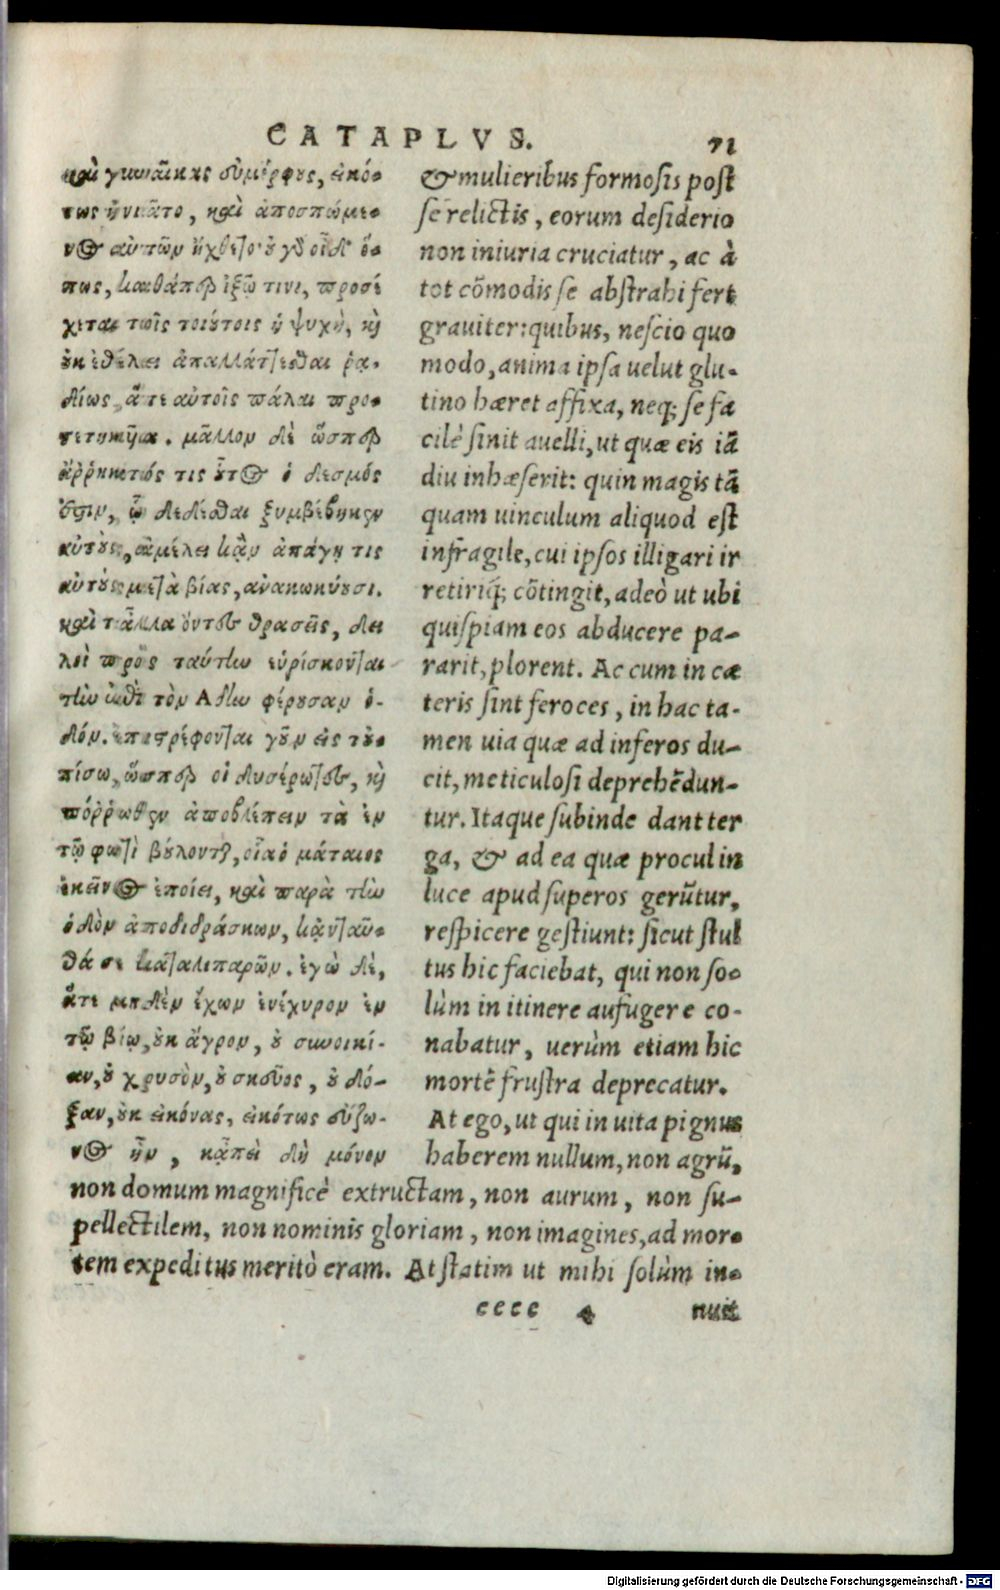 CATAPLVS.
71
καὶ γυναῖκας εὐμόρφους, εἰκό-
τως ἠνιᾶτο, καὶ ἀποσπώμε-
νος αὐτῶν ἤχθετο· οὐ γὰρ οἶδ᾽ ὅ-
πως, καθάπερ ἰξῷ τινι, προσέ
χεται τοῖς τοιούτοις ἡ ψυχὴ, καὶ
οὐκ ἐθέλει ἀπαλλάττεσθαι ῥα-
δίως, ἅτε αὐτοῖς πάλαι προσ-
τετηκυῖα. μᾶλλον δὲ ὥσπερ
ἄῤῥηκτός τις οὗτος ὁ δεσμός
ἐστιν, ᾧ δεδέσθαι ξυμβέβηκεν
αὐτούς, ἀμέλει κᾂν ἀπάγῃ τις
αὐτοὺς μετὰ βίας, ἀνακωκύουσι.
καὶ τἆλλα ὄντες θρασεῖς, δει
λοὶ πρὸς ταύτην εὑρίσκονται
τὴν ἐπὶ τὸν Ἅδην φέρουσαν ὁ-
δόν. ἐπιστρέφονται γοῦν εἰς τοὐ-
πίσω, ὥσπερ οἱ δυσέρωτες, καὶ
πόῤῥωθεν ἀποβλέπειν τὰ ἐν
τῷ φωτὶ βούλονται, οἷα ὁ μάταιος
ἐκεῖνος ἐποίει, καὶ παρὰ τὴν
ὁδὸν ἀποδιδράσκων, κᾀνταῦ-
θά σε καταλιπαρῶν. ἐγὼ δὲ,
ἅτε μηδὲν ἔχων ἐνέχυρον ἐν
τῷ βίῳ, οὐκ ἄγρον, οὐ συνοικί-
αν, οὐ χρυσὸν, οὐ σκεῦος, οὐ δό-
ξαν, οὐκ εἰκόνας, εἰκότως εὔζω-
νος ἦν, κᾀπεὶ δὴ μόνον
& mulieribus formosis post
se relictis, eorum desiderio
non iniuria cruciatur, ac à
tot cõmodis se abstrahi fert
grauiter: quibus, nescio quo
modo, anima ipsa uelut glu-
tino hæret affixa, neq; se fa
cilè sinit auelli, ut quæ eis iã
diu inhæserit: quin magis tã
quam uinculum aliquod est
infragile, cui ipsos illigari ir
retiriq́; cõtingit, adeò ut ubi
quispiam eos abducere pa-
rarit, plorent. Ac cum in cæ
teris sint feroces, in hac ta-
men uia quæ ad inferos du-
cit, meticulosi deprehẽdun-
tur. Itaque subinde dant ter
ga, & ad ea quæ procul in
luce apud superos gerũtur,
respicere gestiunt: sicut stul
tus hic faciebat, qui non so-
lùm in itinere aufugere co-
nabatur, uerùm etiam hic
mortẽ frustra deprecatur.
At ego, ut qui in uita pignus
haberem nullum, non agrũ,
non domum magnificè extructam, non aurum, non su-
pellectilem, non nominis gloriam, non imagines, ad mor-
tem expeditus meritò eram. At statim ut mihi solùm in-
eeee 4 nuit
Digitalisierung gefördert durch die Deutsche Forschungsgemeinschaft - DFG